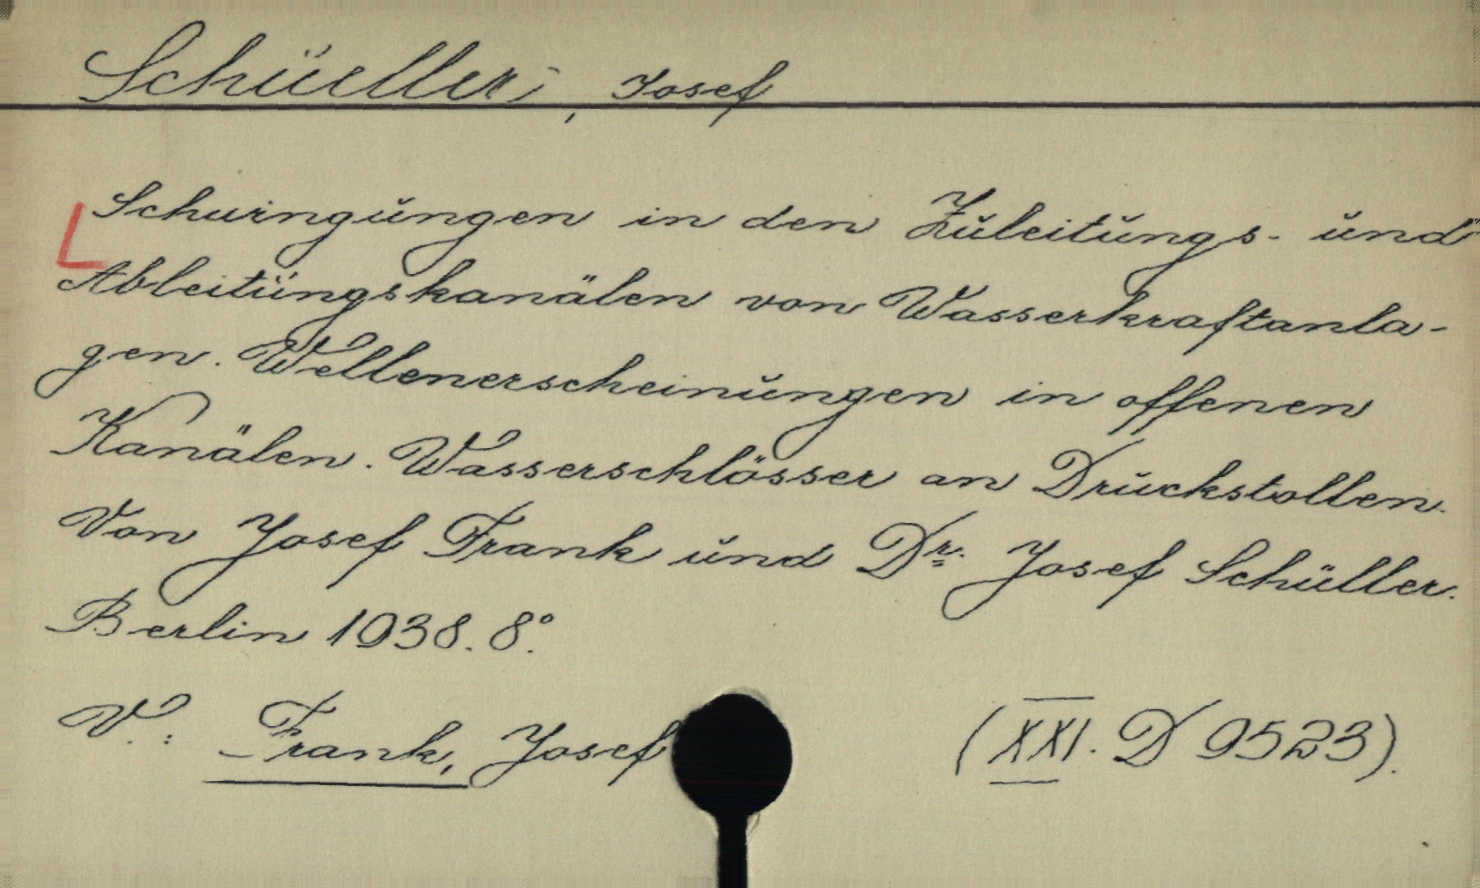 Schüeller, Josef
Schwingungen in den Zuleitungs- und
Ableitungskanälen von Wasserkraftanla-
gen. Wellenerscheinungen in offenen
Kanälen. Wasserschlösser an Druckstollen.
Von Josef Frank und Dr. Josef Schüller.
Berlin 1938. 8°.
V.: Frank, Josef (XXI. D 9523).